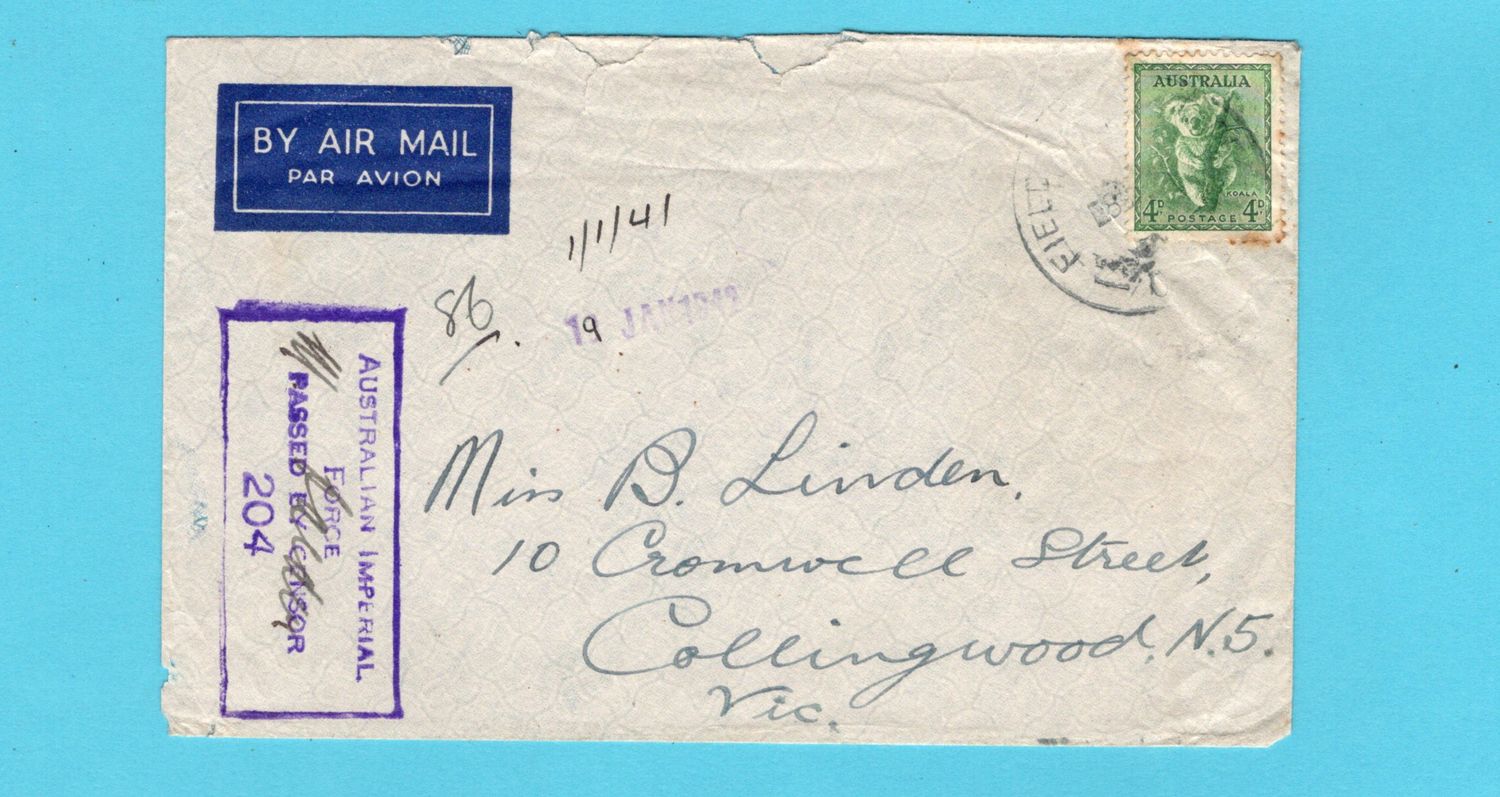 BY AIR MAIL
PAR AVION
AUSTRALIA
KOALA
4D POSTAGE 4D
FIELD
1/1/41
86
19 JAN 1942
AUSTRALIAN IMPERIAL
FORCE
PASSED BY CENSOR
204
Miss B. Linden,
10 Cromwell Street,
Collingwood. N.5.
Vic.